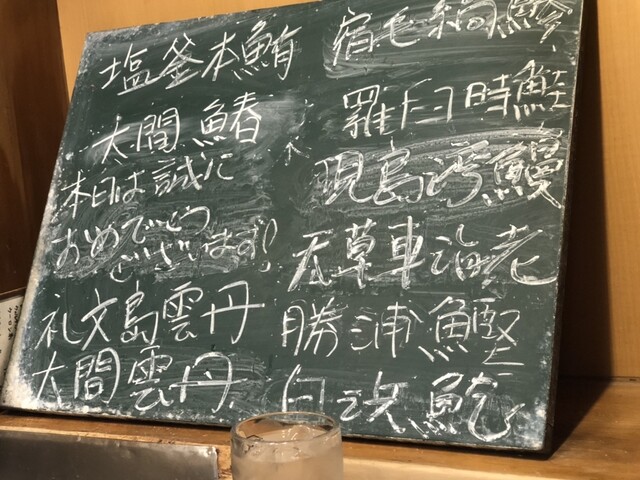 塩釜本鮪
大間 鰆
本日は誠に
おめでとう
ございます!
礼文島雲丹
大間雲丹
宿毛縞鯵
羅臼時鮭
児島湾鰻
天草車海老
勝浦鰹
白浜鮑